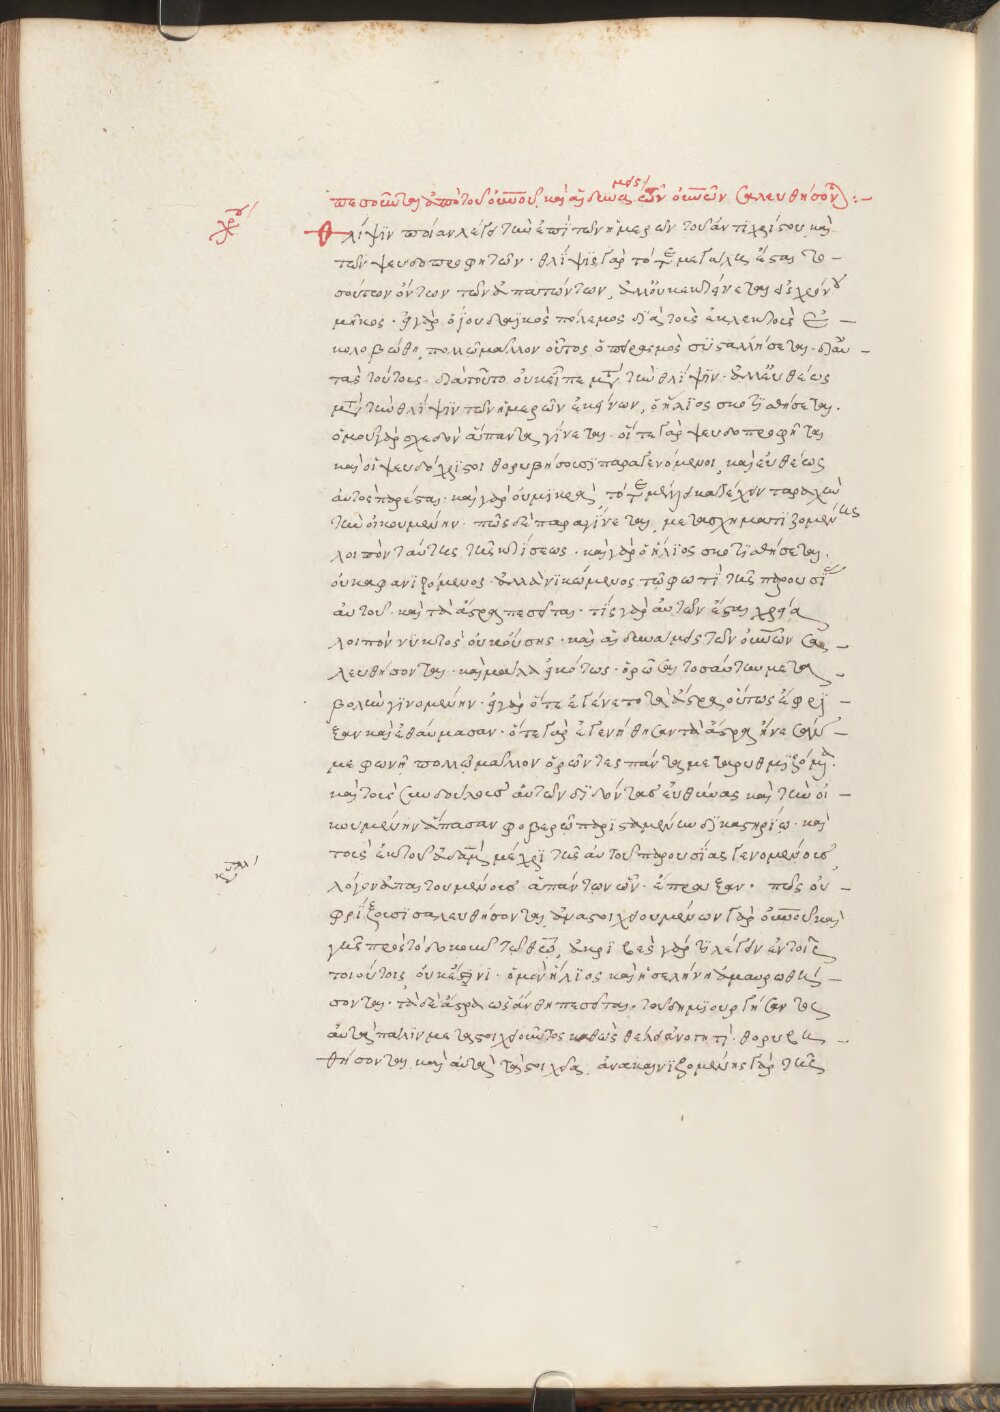 πεσοῦνται ἀπὸ τοῦ οὐνοῦ, καὶ αἱ δυνάμεις τῶν οὐνῶν σαλευθήσον:-
χρυ
Θλίψιν ποίαν λέγει τὴν ἐπὶ τῶν ἡμερῶν τοῦ ἀντιχρίστου καὶ
τῶν ψευδοπροφητῶν· θλίψις γὰρ τότε μεγάλη ἔσται το-
σούτων ὄντων τῶν ἀπατώντων, ἀλλ' οὐκ ἐκτείνεται εἰς χρόνου
μῆκος· εἰ γὰρ ὁ ἰουδαϊκὸς πόλεμος διὰ τοὺς ἐκλεκτοὺς ἐ-
κολοβώθη, πολλῷ μᾶλλον οὗτος ὁ πειρασμὸς συσταλήσεται· δι' αὐ-
τοὺς τούτους· διὰ τοῦτο οὐκ εἶπε μετὰ τὴν θλίψιν· ἀλλ' εὐθέως
μετὰ τὴν θλίψιν τῶν ἡμερῶν ἐκείνων, ὁ ἥλιος σκοτισθήσεται.
ὁμοῦ γὰρ σχεδὸν ἅπαντα γίνεται· οἵ τε γὰρ ψευδοπροφῆται
καὶ οἱ ψευδόχριστοι θορυβήσουσι παραγενόμενοι, καὶ εὐθέως
αὐτὸς πάρεσται· καὶ γὰρ οὐ μικρὰ τότε μέλλει κατέχειν ταραχὴ
τὴν οἰκουμένην· πῶς δὲ παραγίνεται, μετασχηματιζομένης
λοιπὸν ταύτης τῆς κτίσεως· καὶ γὰρ ὁ ἥλιος σκοτισθήσεται,
οὐκ ἀφανιζόμενος· ἀλλὰ νικώμενος τῷ φωτὶ τῆς παρουσίας
αὐτοῦ· καὶ τὰ ἄστρα πεσεῖται· τίς γὰρ αὐτῶν ἔσται χρεία
λοιπὸν νυκτὸς οὐκ οὔσης· καὶ αἱ δυνάμεις τῶν οὐνῶν σα-
λευθήσονται· καὶ μάλα εἰκότως· ὁρῶσαι τοσαύτην μετα-
βολὴν γινομένην· εἰ γὰρ ὅτε ἐγένετο τὰ ἄστρα οὕτως ἔφρι-
ξαν καὶ ἐθαύμασαν· ὅτε γὰρ ἐγενήθησαν τὰ ἄστρα ᾔνεσάν
με φωνῇ πολλῷ μᾶλλον ὁρῶντες πάντα μεταρυθμιζόμενα.
καὶ τοὺς συνδούλους αὐτῶν διδόντας εὐθύνας καὶ τὴν οἰ-
κουμένην ἅπασαν φοβερῷ παρισταμένην δικαστηρίῳ· καὶ
τοὺς ἐκ τοῦ ἀδὰμ μέχρι τῆς αὐτοῦ παρουσίας γενομένους,
λόγον ἀπαιτουμένους ἁπάντων ὧν ἔπραξαν· πῶς οὐ
φρίξουσι σαλευθήσονται, ἀναστοιχειουμένων γὰρ οὐνοῦ καὶ
γῆς πρὸς τὸ δοκοῦν τῷ θεῷ, ἀκριβὲς γὰρ τι λέγειν ἐν τοῖς
τοιούτοις οὐκ ἔστιν· ὁ μὲν ἥλιος καὶ ἡ σελήνη ἀμαυρωθή-
σονται· τὰ δὲ ἄστρα ὡς ἄνθη πεσεῖται, τοῦ δημιουργήσαντος
αὐτὰ πάλιν μεταστοιχειοῦντος καθὼς θέλει ἑνότητι· θορυβη-
θήσονται καὶ αὐτὰ τὰ στοιχεῖα, ἀνακαινιζομένης γὰρ τῆς